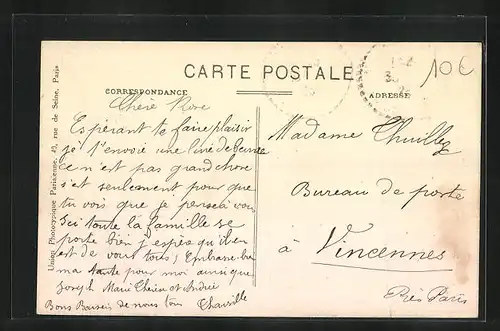 CARTE POSTALE
CORRESPONDANCE
ADRESSE
10€
Union Phototypique Parisienne, 49, rue de Seine, Paris
Chère Rose
Espérant te faire plaisir
je t'envoie une
ce n'est pas grand chose
s'est seulement pour que
tu vois que je pense à vous
Ici toute la famille se
porte bien j'espère qu'il en
est de vous tous, Embrasse bien
ma tante pour moi ainsi que
Joseph Marie et André
Bons Baisers de nous tous
Madame
Bureau de poste
à Vincennes
Près Paris